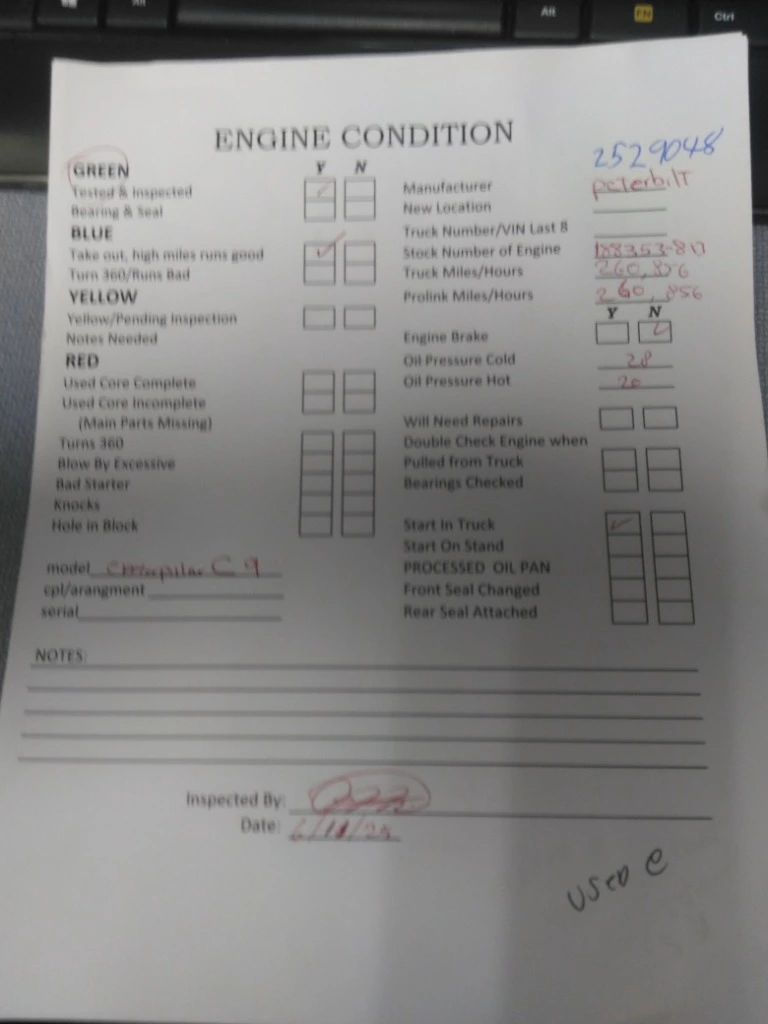 Alt
Alt
FN
Ctrl
ENGINE CONDITION
2529048
GREEN
Y N
Tested & Inspected
Bearing & Seal
BLUE
Take out, high miles runs good
Turn 360/Runs Bad
YELLOW
Yellow/Pending Inspection
Notes Needed
RED
Used Core Complete
Used Core Incomplete
(Main Parts Missing)
Turns 360
Blow By Excessive
Bad Starter
Knocks
Hole in Block
model C9
cpl/arangment
serial
Manufacturer peterbilt
New Location
Truck Number/VIN Last 8
Stock Number of Engine
Truck Miles/Hours 260,856
Prolink Miles/Hours 260,856
Y N
Engine Brake
Oil Pressure Cold 28
Oil Pressure Hot 20
Will Need Repairs
Double Check Engine when
Pulled from Truck
Bearings Checked
Start In Truck
Start On Stand
PROCESSED OIL PAN
Front Seal Changed
Rear Seal Attached
NOTES:
Inspected By:
Date:
USED e